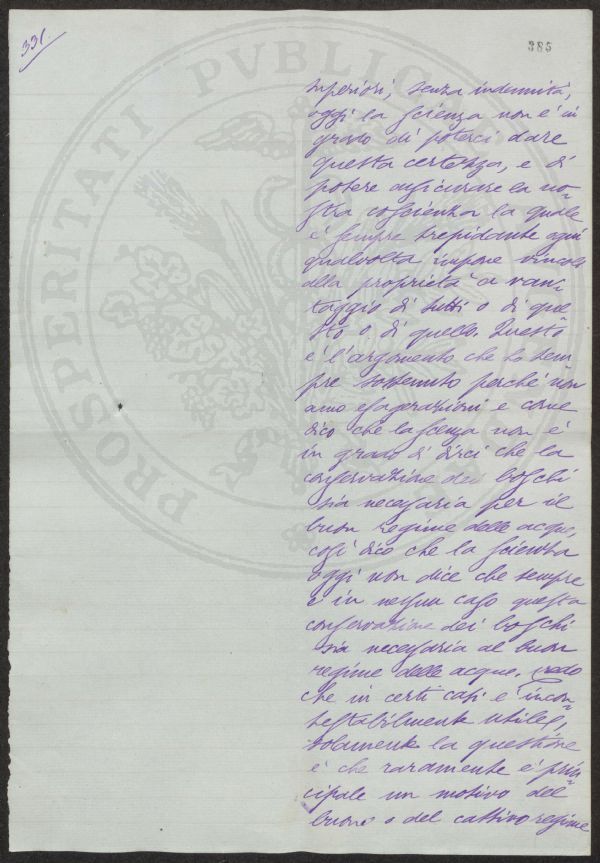 331.
385
PROSPERITATI PVBLICAE
superiori, senza indennità,
oggi la scienza non è in
grado di poterci dare
questa certezza, e di
potere assicurare la no=
stra coscienza la quale
è sempre trepidante ogni
qualvolta impone vincoli
alla proprietà a van=
taggio di tutti o di que=
sto o di quello. Questo
è l'argomento che ho sem
pre sostenuto perché non
amo esagerazioni e come
dico che la scenza non è
in grado di dirci che la
conservazione dei boschi
sia necessaria per il
buon regime delle acque,
così dico che la scienza
oggi non dice che sempre
e in nessun caso questa
conservazione dei boschi
sia necessaria al buon
regime delle acque. Credo
che in certi casi è incon=
testabilmente utile,
solamente la questione
è che raramente è prin
cipale un motivo del
buono o del cattivo regime